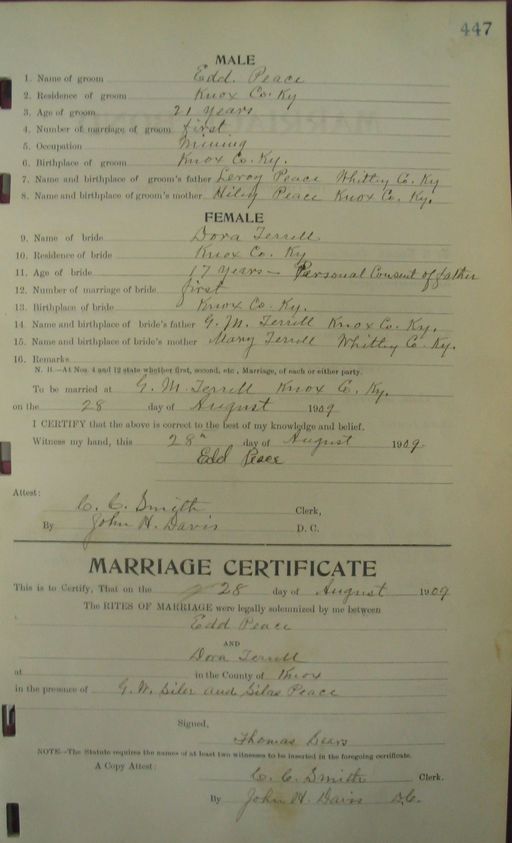 447
MALE
1. Name of groom Edd. Peace
2. Residence of groom Knox Co. Ky
3. Age of groom 21 years
4. Number of marriage of groom first
5. Occupation Mining
6. Birthplace of groom Knox Co. Ky.
7. Name and birthplace of groom's father Leroy Peace Whitley Co. Ky
8. Name and birthplace of groom's mother Peace Knox Co. Ky.
FEMALE
9. Name of bride Dora Terrell
10. Residence of bride Knox Co. Ky
11. Age of bride 17 years — Personal Consent of father
12. Number of marriage of bride first
13. Birthplace of bride Knox Co. Ky.
14. Name and birthplace of bride's father G. M. Terrell Knox Co. Ky.
15. Name and birthplace of bride's mother Mary Terrell Whitley Co. Ky.
16. Remarks
N. B.—At Nos. 4 and 12 state whether first, second, etc., Marriage, of each or either party.
To be married at G. M. Terrell Knox Co. Ky.
on the 28 day of August 1909
I CERTIFY that the above is correct to the best of my knowledge and belief.
Witness my hand, this 28" day of August 1909
Edd Peace
Attest:
C. C. Smith Clerk,
By John H. Davis D. C.
MARRIAGE CERTIFICATE
This is to Certify, That on the 28 day of August 1909
The RITES OF MARRIAGE were legally solemnized by me between
Edd Peace
AND
Dora Terrell
at in the County of Knox
in the presence of G. W. Siler and Silas Peace
Signed,
Thomas
NOTE—The Statute requires the names of at least two witnesses to be inserted in the foregoing certificate.
A Copy Attest:
C. C. Smith Clerk.
By John H. Davis D.C.